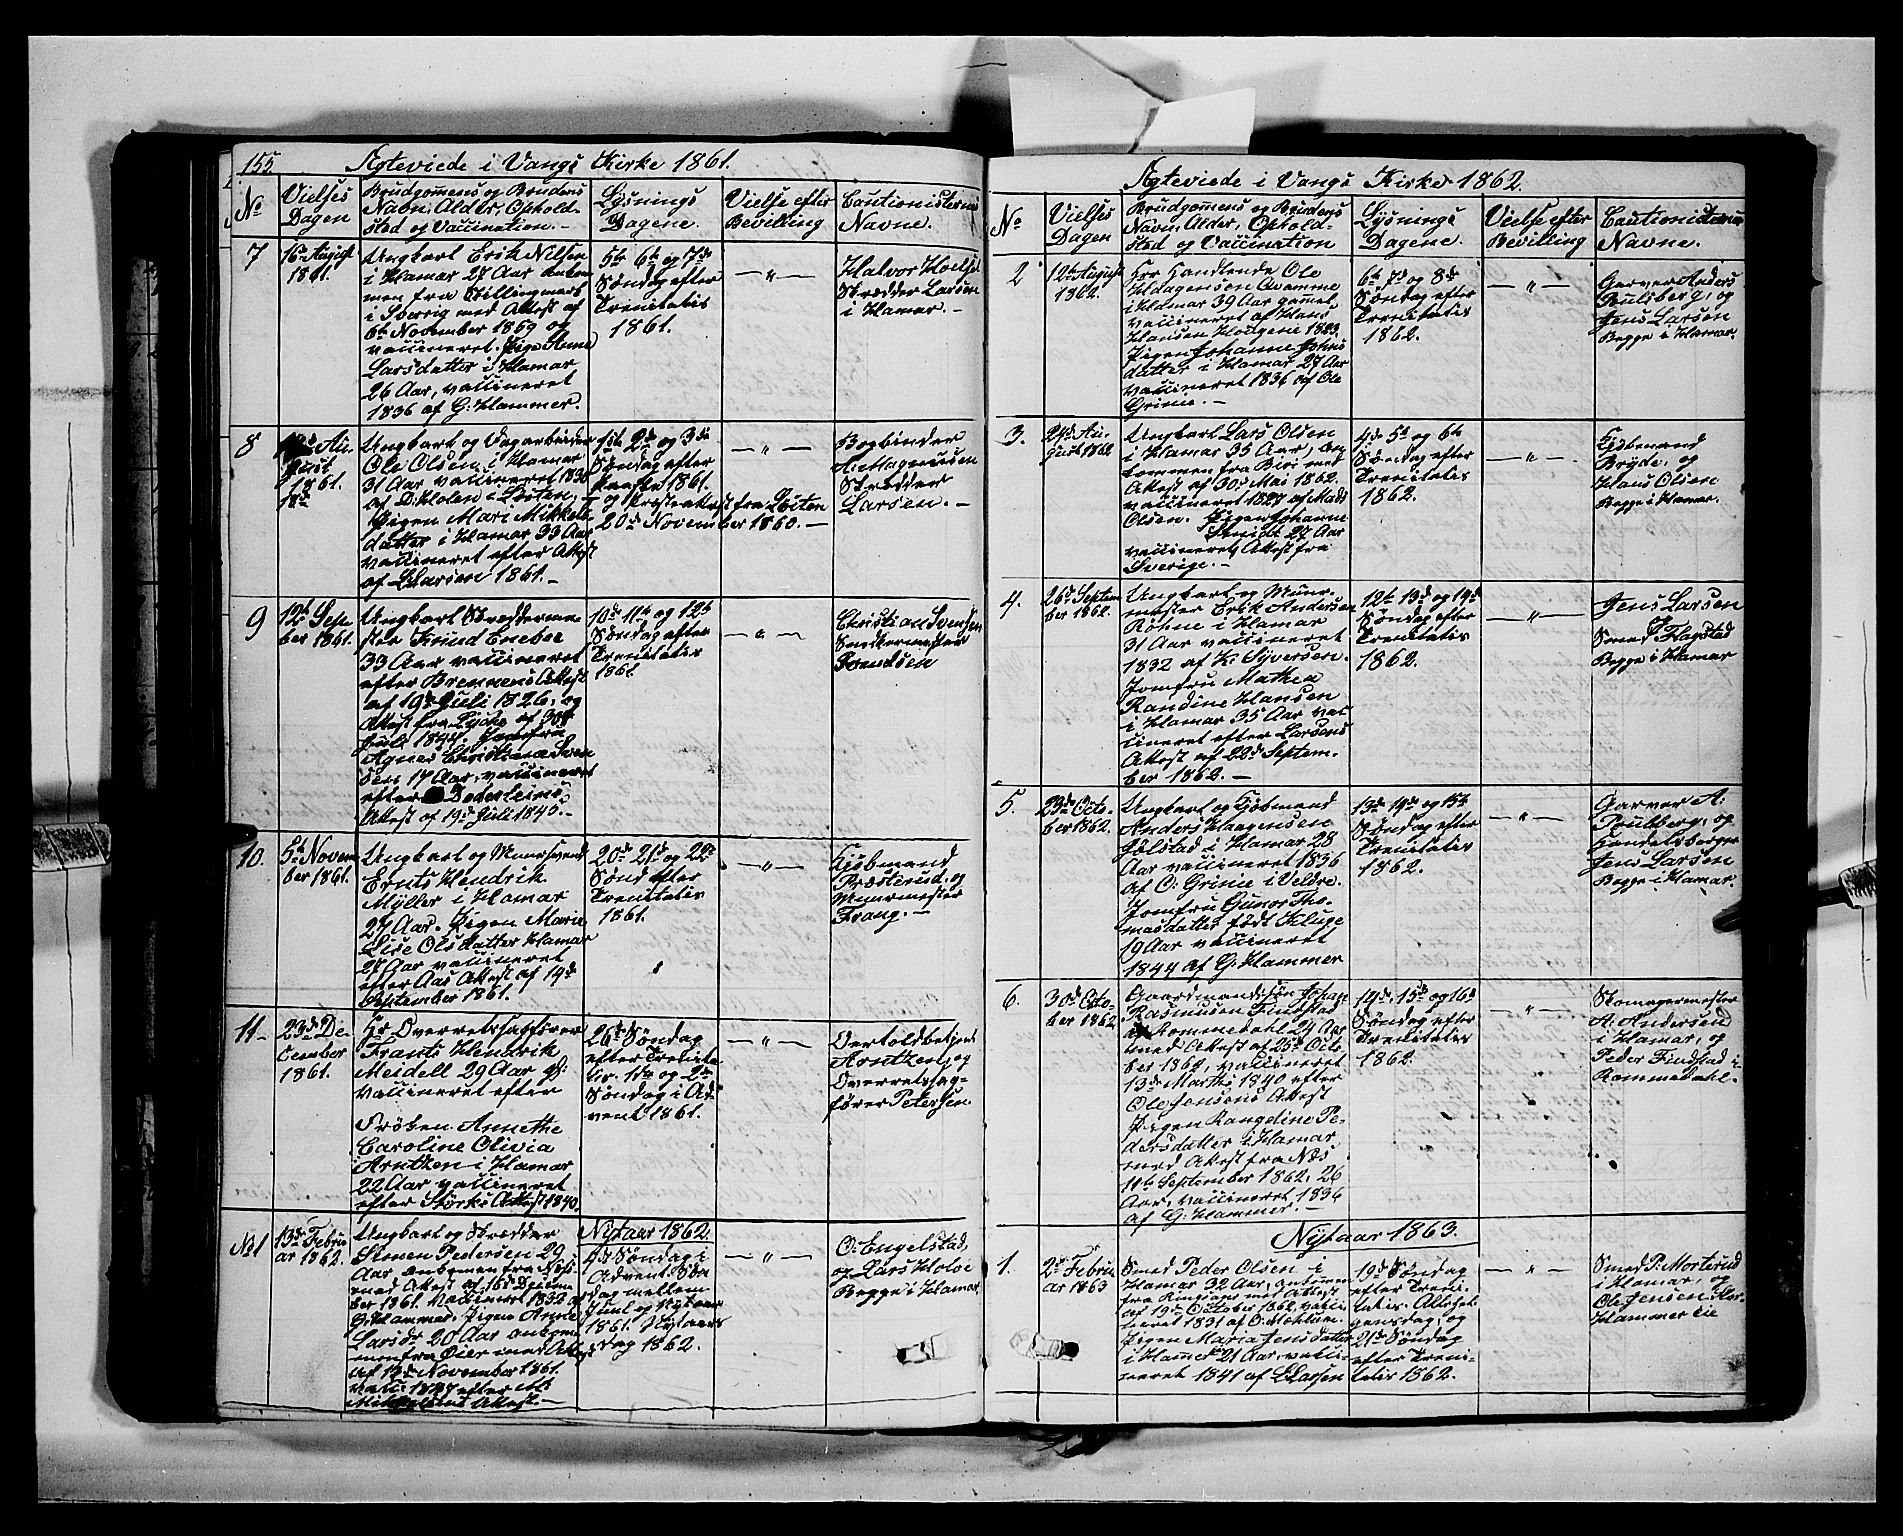 155
Ægteviede i Vangs Kirke 1861.
No
Vielses
Dagen
Brudgommens og Brudens
Navn, Alder, Ophold-
sted og Vaccination.-
Lysnings
Dagene.
Vielse efter
Bevilling
Cautionisternes
Navne.
7
16 August
1861.
Ungkarl Erik Nilsen
i Hamar 27 Aar ankom
men fra
i Sverrig med Attest af
6te November 1859 og
vaccineret. Pige Anne
Larsdatter i Hamar
26 Aar, vaccineret
1836 af G: Hammer.
5te 6te og 7de
Søndag efter
Trenitatis
1861.
— " —
Halvor Hoelsa
Skrædder Larsen
i Hamar. -
8
Au-
gust
1861.
Ungkarl og Dagarbeider
Ole Olsen i Hamar
31 Aar vaccineret 1830
af D: Holen i Løiten,
Pigen Mari Mikkels
datter i Hamar 33 Aar
vaccineret efter Attest
af L Larsen 1861. -
1ste 2de og 3die
Søndag efter
Paaske 1861.
og Præsteattest fra Løiten
20de November 1860. -
— " —
Bogbinder
A: Magnussen
Skrædder
Larsen. -
9
12te Sep-
ber 1861.
Ungkarl Skrædderme-
ster Knud Eneboe
33 Aar vaccineret
efter Brennens Attest
af 19de Juli 1826, og
Attest fra Lycke af 30te
Juli 1844. Jomfru
Agnes Christiane Sven
sen 17 Aar, vaccineret
efter
Attest af 19de Juli 1845. -
10de 11te og 12te
Søndag efter
Trenitatis
1861.
— " —
Christian Svensen
Snedkermester
10.
5te Novem
ber 1861.
Ungkarl og Muursvend
Ernts Hendrik
Møller i Hamar
27 Aar. Pigen Marie
Lise Olsdatter Hamar
27 Aar vaccineret
efter Aas Attest af 14de
September 1861.
20de 21de og 22de
Sønd efter
Trenitatis
1861.
— " —
Kjøbmand
Præsterud. og
Muurmester
Frang. -
11 -
23de De-
cember
1861.
Hr Overretssagfører
Frants Hendrik
Meidell 29 Aar gl:
vaccineret efter
Frøken Annethe
Caroline Olivia
Arntzen i Hamar
22 Aar vaccineret
efter Størks Attest 1840.
26de Søndag
efter Trenita-
tis. 1ste og 2den
Søndag i Ad-
vent 1861.
— " —
Overtoldbetjent
Arntzen, og
Overretssag-
fører Petersen.
No 1
13de Febru
ar 1862.
Ungkarl og Skrædder
Simen Pedersen 29
Aar ankomen fra Næs
med Attest af 16de Decem-
ber 1861. Vaccineret 1832 af
G: Hammer. Pigen Anne
Larsdr 20 Aar ankom-
men fra Øier med Attest
af 13de November 1861.
vacc: 1847 efter
Attest. -
Nytaar 1862.
4de Søndag i
Advent. Søn
dag mellem
Juul og Nytaar
1861. Nytaars
dag 1862.
— " —
O: Engelstad,
og Lars Holve
Begge i Hamar.
Ægteviede i Vangs Kirke 1862.
No
Vielses
Dagen
Brudgommens og Brudens
Navn, Alder, Ophold-
sted og Vaccination
Lysnings
Dagene.
Vielse efter
Bevilling
Cautionisternes
Navne.
2
12te August
1862.
Hr Handlende Ole
Hdagenson Qvamme
i Hamar 39 Aar gammel,
vaccineret af Hans
Hansen Hougene 1823.
Pigen Johanne Johns
datter i Hamar 27 Aar
vaccineret 1836 af Ole
Grinie. -
6te 7de og 8de
Søndag efter
Trenitatis
1862.
— " —
Garver Anders
Pulsberg, og
Jens Larsen
Begge i Hamar.
3.
24de Au-
gust 1862
Ungkarl Lars Olsen
i Hamar 35 Aar, an
kommen fra Biri med
Attest af 30te Mai 1862.
vaccineret 1827 af Mads
Olsen. Pigen Johanne
Smidt 27 Aar
vaccineret, Attest fra
Sverige. -
4de 5te og 6te
Søndag efter
Trenitatis
1862.
— " —
Kjøbmand
Bryde, og
Hans Olsen
Begge i Hamar.
4.
26de Septem
ber 1862.
Ungkarl og Muur-
mester Erik Andersen
Røhne i Hamar
31 Aar vaccineret
1832 af K. Syversen.
Jomfru Mathea
Randine Hansen
i Hamar 35 Aar vac-
cineret efter Larsens
Attest af 22de Septem-
ber 1862. -
12te 13de og 14de
Søndag efter
Trenitatis
1862.
— " —
Jens Larsen
Smed Flagstad
Begge i Hamar
5.
23de Octo-
ber 1862.
Ungkarl og Kjøbmand
Anders Haagensen
Jølstad i Hamar 28
Aar vaccineret 1836
af O: Grinie i Veldre.
Jomfru Gunor Tho-
masdatter født Kluge
19 Aar vaccineret
1844 af G: Hammer
13de 14de og 15te
Søndag efter
Trenitatis
1862.
— " —
Garver A:
Pulsberg, og
Handelsborger
Jens Larsen
Begge i Hamar.
6.
30de Octo-
ber 1862
Gaardmandssøn Johan
Rasmusen Findstad
Rommedahl 24 Aar
med Attest af 25de Octo
ber 1862, vaccineret
13de Marths 1840 efter
Ole Jensens Attest
Pigen Rangdine Pe-
dersdatter i Hamar,
med Attest fra Næs
11te September 1862, 26
Aar, vaccineret 1836
af G: Hammer. -
14de, 15de og 16de
Søndag efter
Trenitatis
1862.
— " —
Skomagermester
A: Andersen
i Hamar, og
Peder Findstad i
Rommedahl.
Nytaar 1863.
1.
2de Febru
ar 1863
Smed Peder Olsen i
Hamar 32 Aar, ankommen
fra Ringsager med Attest
af 19de October 1862, vacci
neret 1831 af O: Mæhlum.
Pigen Maria Jens datter
i Hamer 21 Aar, vacci-
neret 1841 af L Larsen
19de Søndag
efter Treni-
tatis. Allehel-
gensdag, og
21de Søndag
efter Treni-
tatis 1862.
— " —
Smed P. Mortrud
i Hamar, og
Ole Jensen Stor-
Hammer Eie